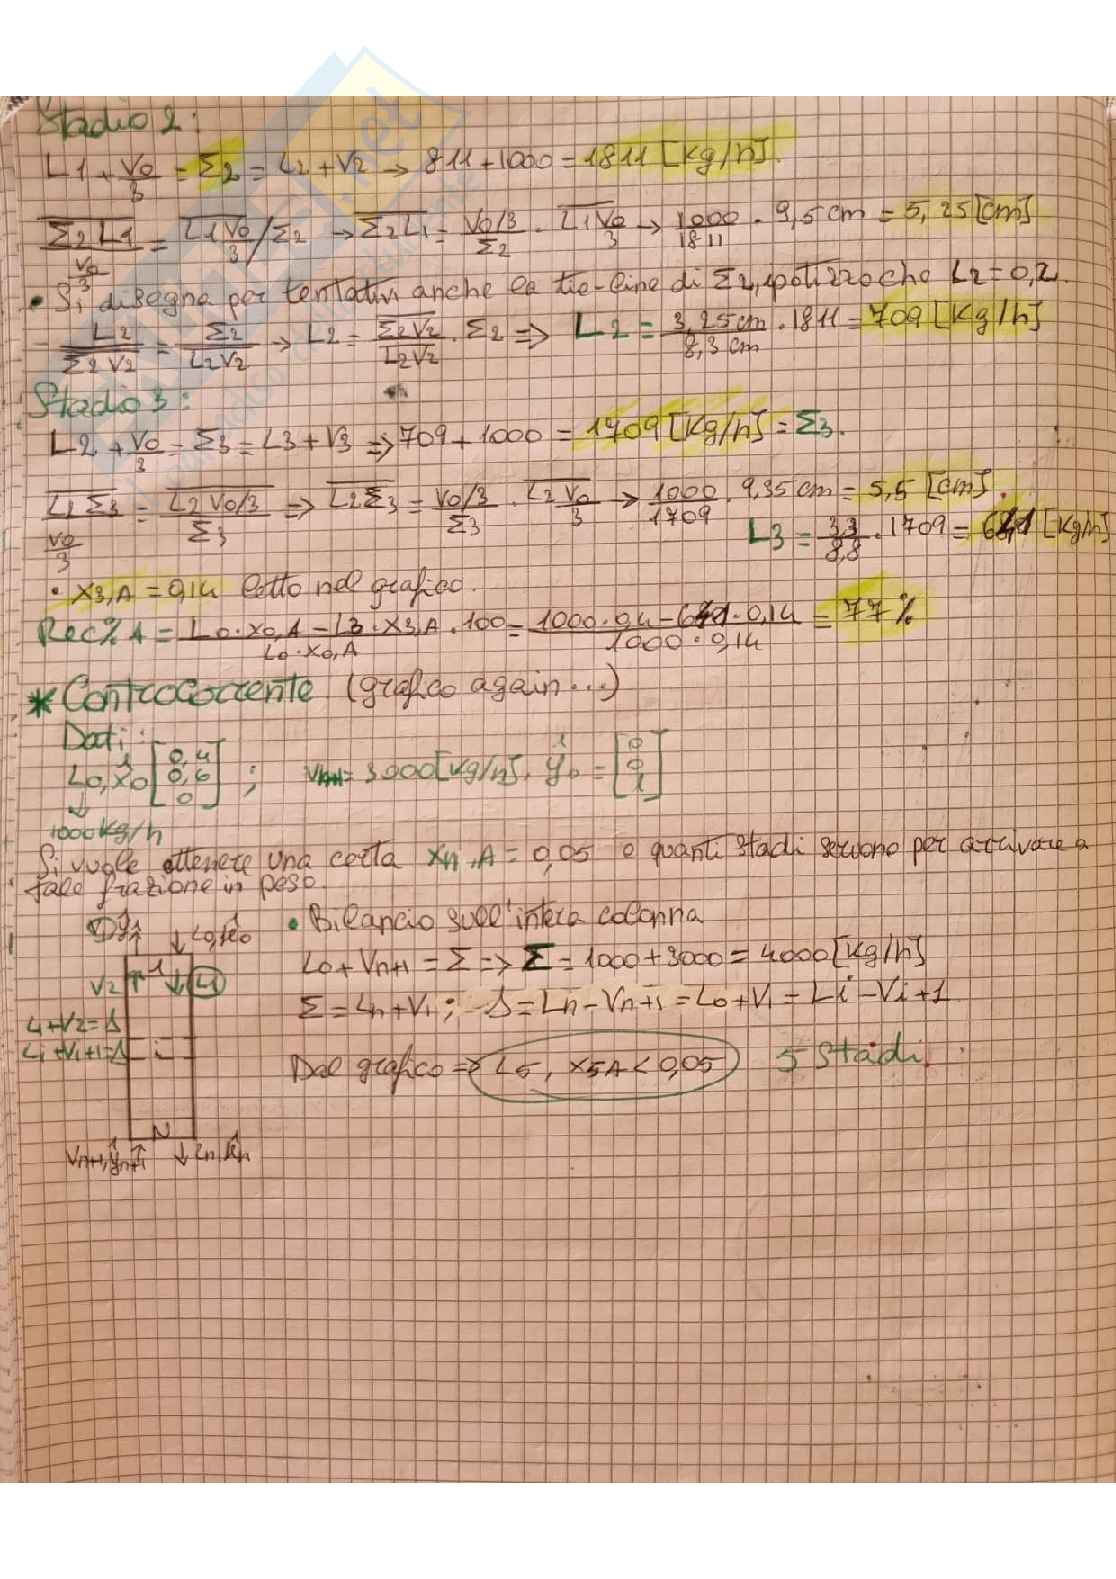 Stadio 2:
L1 + V0/3 = Σ2 = L2 + V2 → 811 + 1000 = 1811 [Kg/h].
Σ2L1 / V0/3 = L1V0/3 / Σ2 → Σ2L1 = V0/3 / Σ2 · L1V0/3 → 1000/1811 · 9,5 cm = 5,25 [cm]
• Si disegna per tentativi anche la tie-line di Σ2, ipotizzo che L2 = 0,2.
L2 / Σ2V2 = Σ2 / L2V2 → L2 = Σ2V2 / L2V2 · Σ2 => L2 = 3,25cm / 8,3 cm · 1811 = 709 [Kg/h]
Stadio 3:
L2 + V0/3 = Σ3 = L3 + V3 => 709 + 1000 = 1709 [Kg/h] = Σ3.
L2Σ3 / V0/3 = L2V0/3 / Σ3 => L2Σ3 = V0/3 / Σ3 · L2V0/3 → 1000/1709 · 9,35 cm = 5,5 [cm].
L3 = 3,3/8,8 · 1709 = [Kg/h]
• X3,A = 0,14 letto nel grafico.
Rec% A = L0·X0,A - L3·X3,A / L0·X0,A · 100 = 1000·0,4 - ·0,14 / 1000·0,14 = 77%
* Controcorrente (grafico again...)
Dati:
L0, x0 [0,4 0,6 0] ; Vn+1 = 3000 [Kg/h], y0 = [0 0 1]
1000 Kg/h
Si vuole ottenere una certa Xn,A = 0,05 e quanti stadi servono per arrivare a
tale frazione in peso.
L0, x0
• Bilancio sull'intera colonna
L0 + Vn+1 = Σ => Σ = 1000 + 3000 = 4000 [Kg/h]
V2 1 L1
Σ = Ln + V1 ; Δ = Ln - Vn+1 = L0 + V1 = Li - Vi+1
L1+V2=Δ
Li+Vi+1=Δ i
Dal grafico => L5, X5A < 0,05 5 Stadi.
N
Vn+1, yn+1 Ln, xn